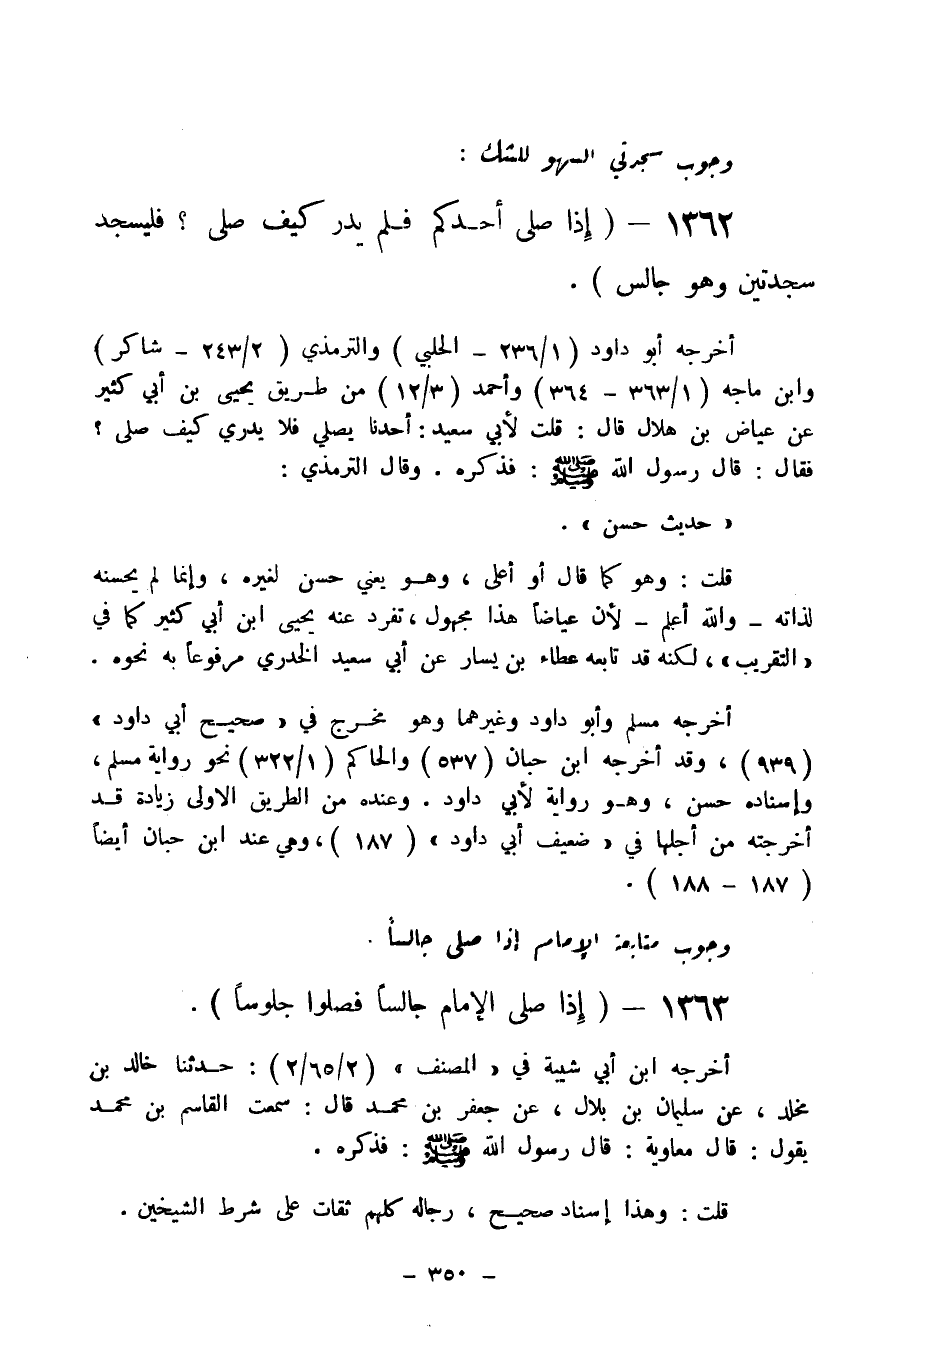 وجوب سجدتي السهو للشك :
١٣٦٢ – ( إذا صلى أحدكم فلم يدر كيف صلى ؟ فليسجد
سجدتين وهو جالس ) .
أخرجه أبو داود ( ٢٣٦/١ – الحلبي ) والترمذي ( ٢٤٣/٢ – شاكر )
وابن ماجه ( ٣٦٣/١ – ٣٦٤ ) وأحمد ( ١٢/٣ ) من طريق يحيى بن أبي كثير
عن عياض بن هلال قال : قلت لأبي سعيد : أحدنا يصلي فلا يدري كيف صلى ؟
فقال : قال رسول الله ﷺ : فذكره . وقال الترمذي :
« حديث حسن » .
قلت : وهو كما قال أو أعلى ، وهو يعني حسن لغيره ، وإنما لم يحسنه
لذاته – والله أعلم – لأن عياضاً هذا مجهول ، تفرد عنه يحيى ابن أبي كثير كما في
« التقريب » ، لكنه قد تابعه عطاء بن يسار عن أبي سعيد الخدري مرفوعاً به نحوه .
أخرجه مسلم وأبو داود وغيرهما وهو مخرج في « صحيح أبي داود »
( ٩٣٩ ) ، وقد أخرجه ابن حبان ( ٥٣٧ ) والحاكم ( ٣٢٢/١ ) نحو رواية مسلم ،
وإسناده حسن ، وهو رواية لأبي داود . وعنده من الطريق الاولى زيادة قد
أخرجته من أجلها في « ضعيف أبي داود » ( ١٨٧ ) ، وهي عند ابن حبان أيضاً
( ١٨٧ – ١٨٨ ) .
وجوب متابعة الإمام إذا صلى جالساً .
١٣٦٣ – ( إذا صلى الإمام جالساً فصلوا جلوساً ) .
أخرجه ابن أبي شيبة في « المصنف » ( ٢/٦٥/٢ ) : حدثنا خالد بن
مخلد ، عن سليمان بن بلال ، عن جعفر بن محمد قال : سمعت القاسم بن محمد
يقول : قال معاوية : قال رسول الله ﷺ : فذكره .
قلت : وهذا إسناد صحيح ، رجاله كلهم ثقات على شرط الشيخين .
– ٣٥٠ –